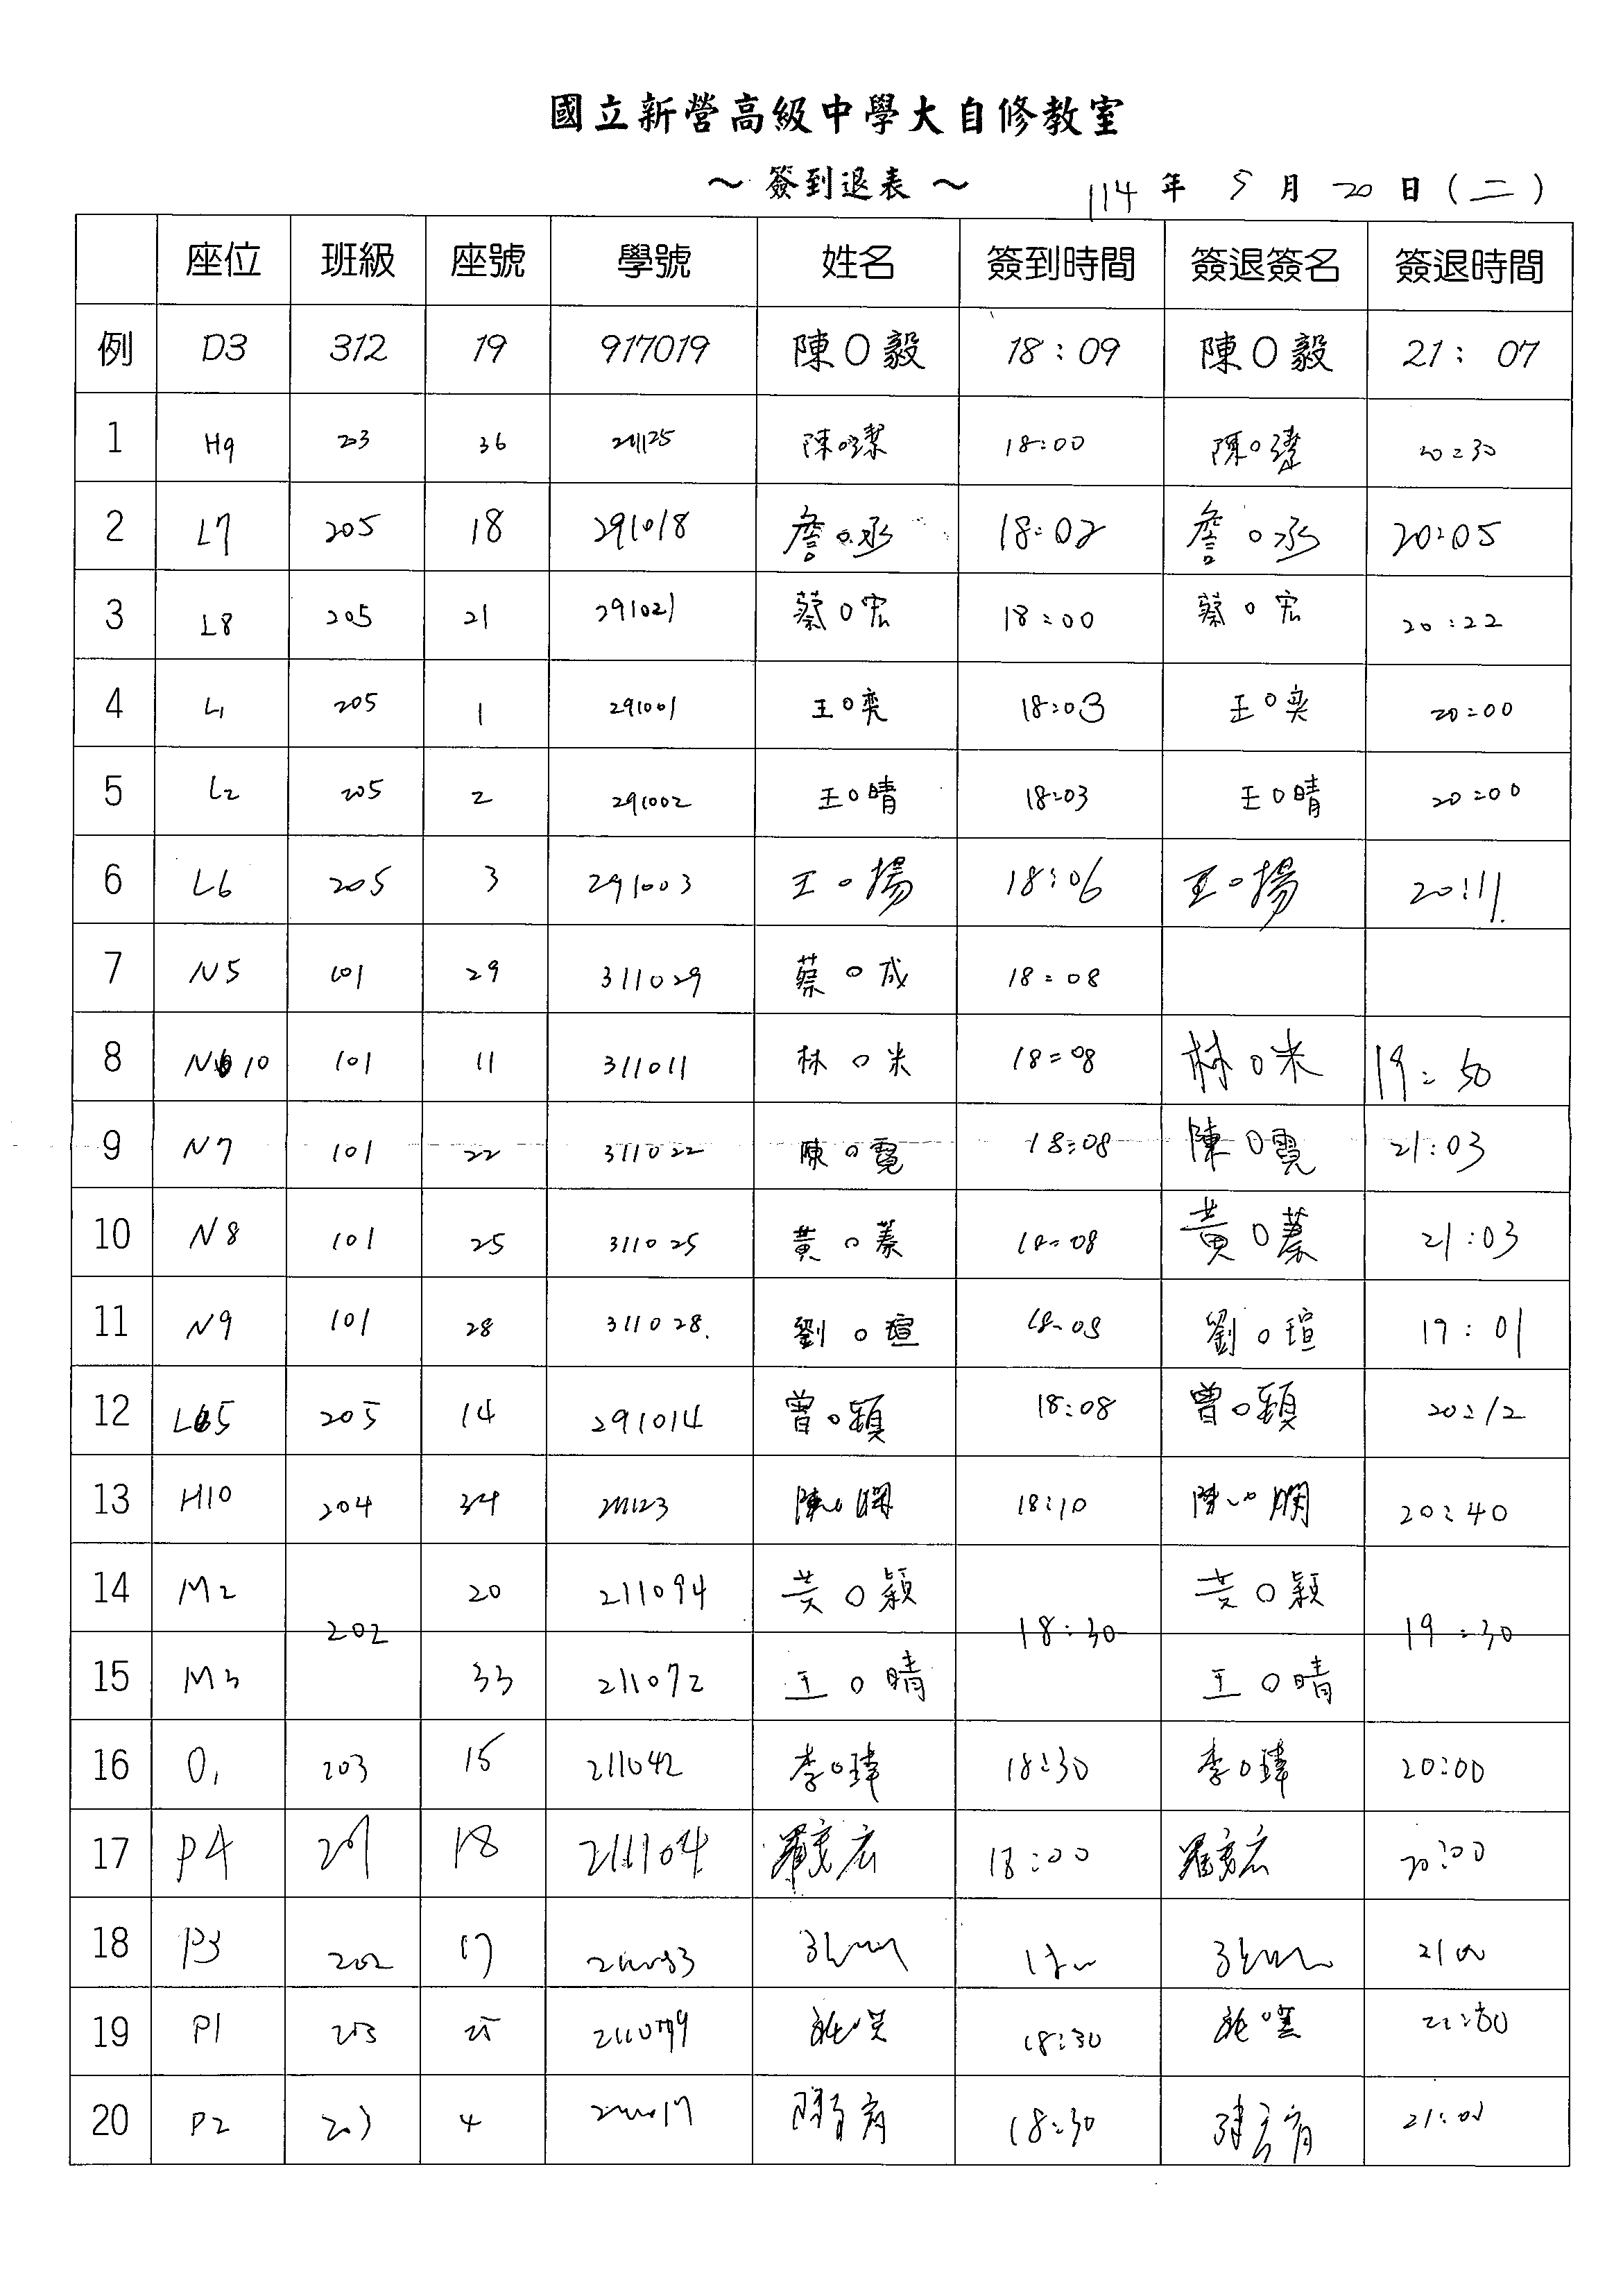 國立新營高級中學大自修教室
～ 簽到退表 ～ 114 年 5 月 20 日 (二)
座位 班級 座號 學號 姓名 簽到時間 簽退簽名 簽退時間
例 D3 312 19 917019 陳O毅 18:09 陳O毅 21:07
1 H9 203 36 211125 陳O潔 18:00 陳O潔 20:30
2 L7 205 18 291018 詹O丞 18:02 詹O丞 20:05
3 L8 205 21 291021 蔡O宏 18:00 蔡O宏 20:22
4 L1 205 1 291001 王O奕 18:03 王O奕 20:00
5 L2 205 2 291002 王O晴 18:03 王O晴 20:00
6 L6 205 3 291003 王O揚 18:06 王O揚 20:11
7 N5 101 29 311029 蔡O成 18:08
8 N10 101 11 311011 林O米 18:08 林O米 19:50
9 N7 101 22 311022 陳O霓 18:08 陳O霓 21:03
10 N8 101 25 311025 黃O蓁 18:08 黃O蓁 21:03
11 N9 101 28 311028. 劉O瑄 18:08 劉O瑄 19:01
12 L5 205 14 291014 曾O穎 18:08 曾O穎 20:12
13 H10 204 34 陳O嫻 18:10 陳O嫻 20:40
14 M2 20 211094 黃O穎 黃O穎
202 18:30 19:30
15 M3 33 211072 王O晴 王O晴
16 O1 203 15 211042 李O瑋 18:30 李O瑋 20:00
17 P4 201 18 211104 18:00 20:00
18 P3 202 17 21:00
19 P1 203 25 18:30
20 P2 203 4 18:30 21:00